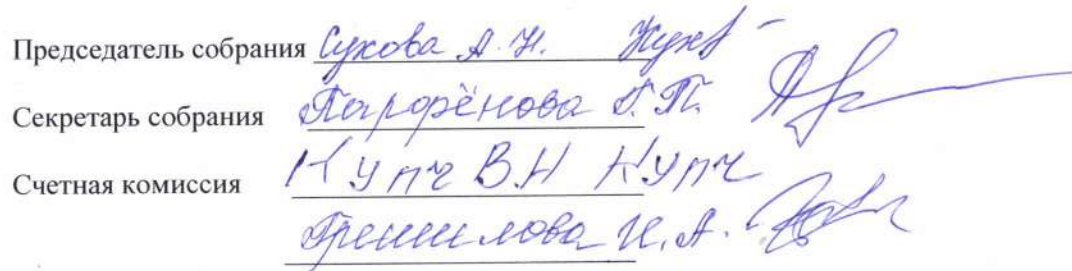 Председатель собрания Сухова А.Н.
Секретарь собрания Парфёнова Г.П.
Счетная комиссия Купч В.Н Купч
Гришилова И.А.